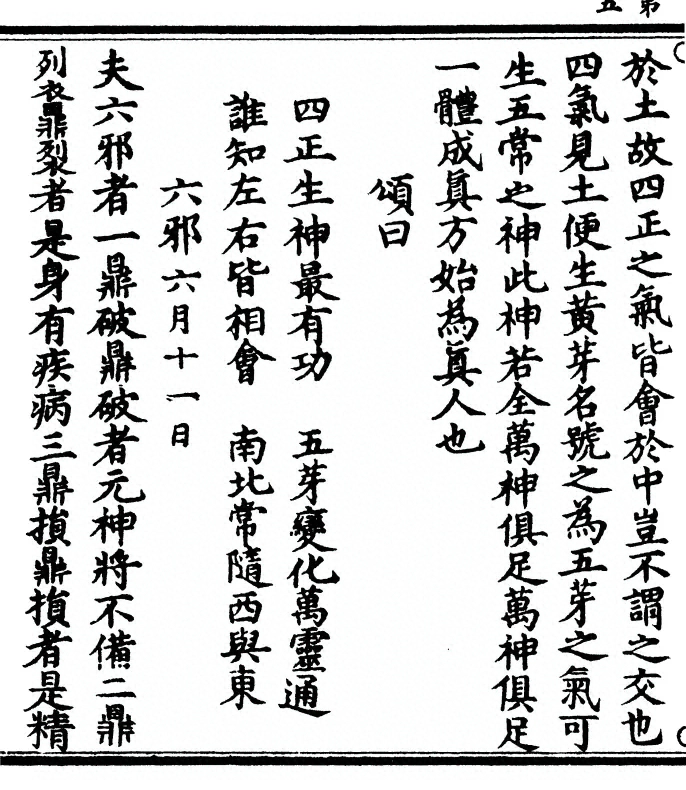 於土故四正之氣皆會於中豈不謂之交也
四氣見土便生黃芽名號之為五芽之氣可
生五常之神此神若全萬神俱足萬神俱足
一體成眞方始為眞人也
頌曰
四正生神最有功　五芽變化萬靈通
誰知左右皆相會　南北常隨西與東
六邪六月十一日
夫六邪者一鼎破鼎破者元神將不備二鼎
裂鼎裂者是身有疾病三鼎損鼎損者是精